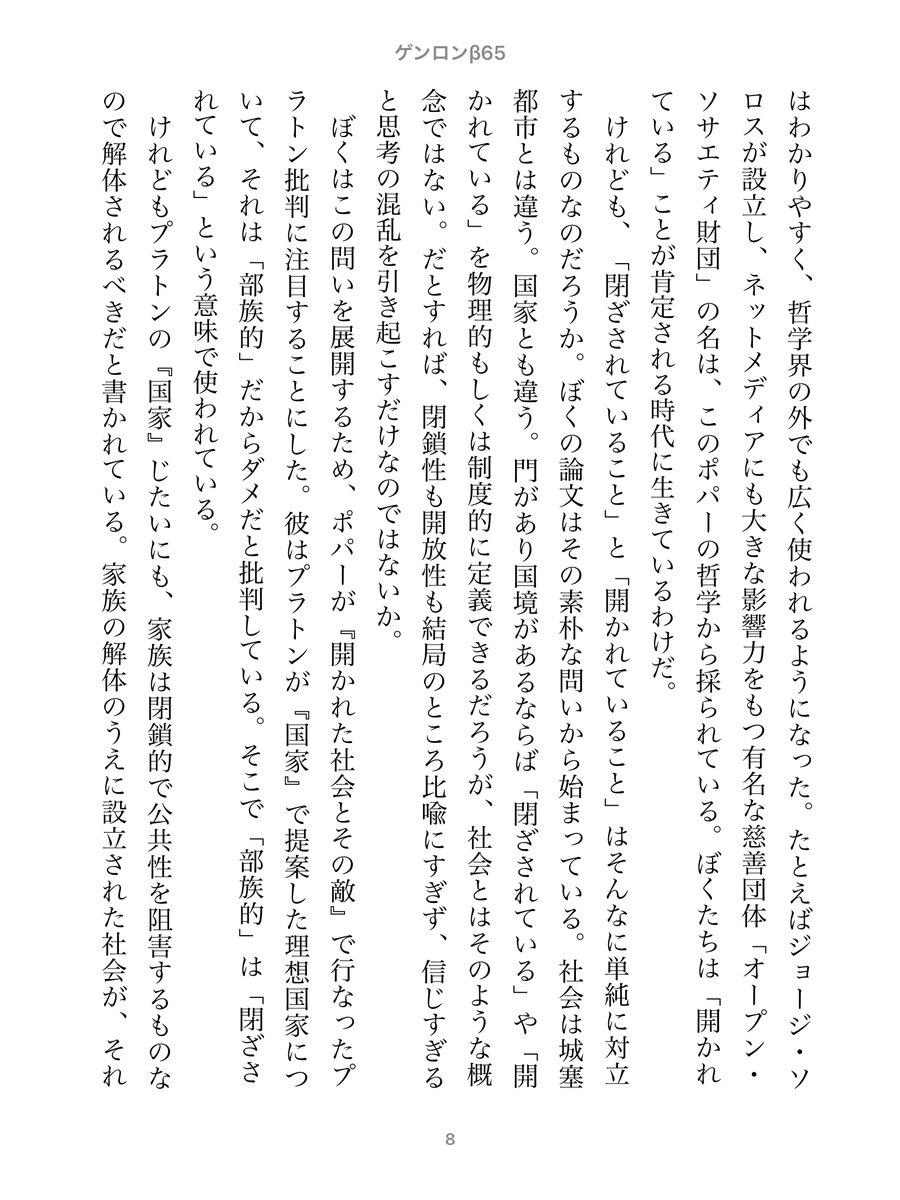 ゲンロンβ65
はわかりやすく、哲学界の外でも広く使われるようになった。たとえばジョージ・ソ
ロスが設立し、ネットメディアにも大きな影響力をもつ有名な慈善団体「オープン・
ソサエティ財団」の名は、このポパーの哲学から採られている。ぼくたちは「開かれ
ている」ことが肯定される時代に生きているわけだ。
けれども、「閉ざされていること」と「開かれていること」はそんなに単純に対立
するものなのだろうか。ぼくの論文はその素朴な問いから始まっている。社会は城塞
都市とは違う。国家とも違う。門があり国境があるならば「閉ざされている」や「開
かれている」を物理的もしくは制度的に定義できるだろうが、社会とはそのような概
念ではない。だとすれば、閉鎖性も開放性も結局のところ比喩にすぎず、信じすぎる
と思考の混乱を引き起こすだけなのではないか。
ぼくはこの問いを展開するため、ポパーが『開かれた社会とその敵』で行なったプ
ラトン批判に注目することにした。彼はプラトンが『国家』で提案した理想国家につ
いて、それは「部族的」だからダメだと批判している。そこで「部族的」は「閉ざさ
れている」という意味で使われている。
けれどもプラトンの『国家』じたいにも、家族は閉鎖的で公共性を阻害するものな
ので解体されるべきだと書かれている。家族の解体のうえに設立された社会が、それ
8